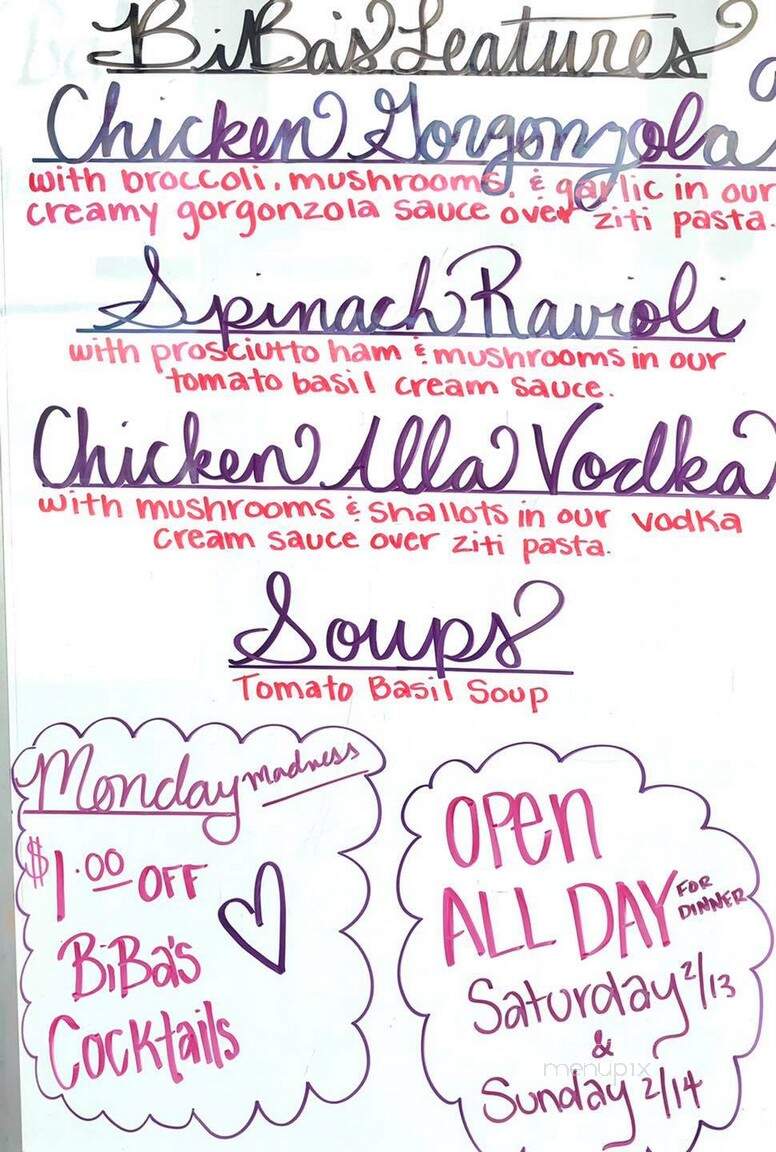 BiBa's Features
Chicken Gorgonzola
with broccoli, mushrooms, & garlic in our
creamy gorgonzola sauce over ziti pasta.
Spinach Ravioli
with prosciutto ham & mushrooms in our
tomato basil cream sauce.
Chicken Alla Vodka
with mushrooms & shallots in our vodka
cream sauce over ziti pasta.
Soups
Tomato Basil Soup
Monday madness
$1.00 OFF
BiBa's
Cocktails
OPen
ALL DAY FOR DINNER
Saturday 2/13
&
menupix
Sunday 2/14